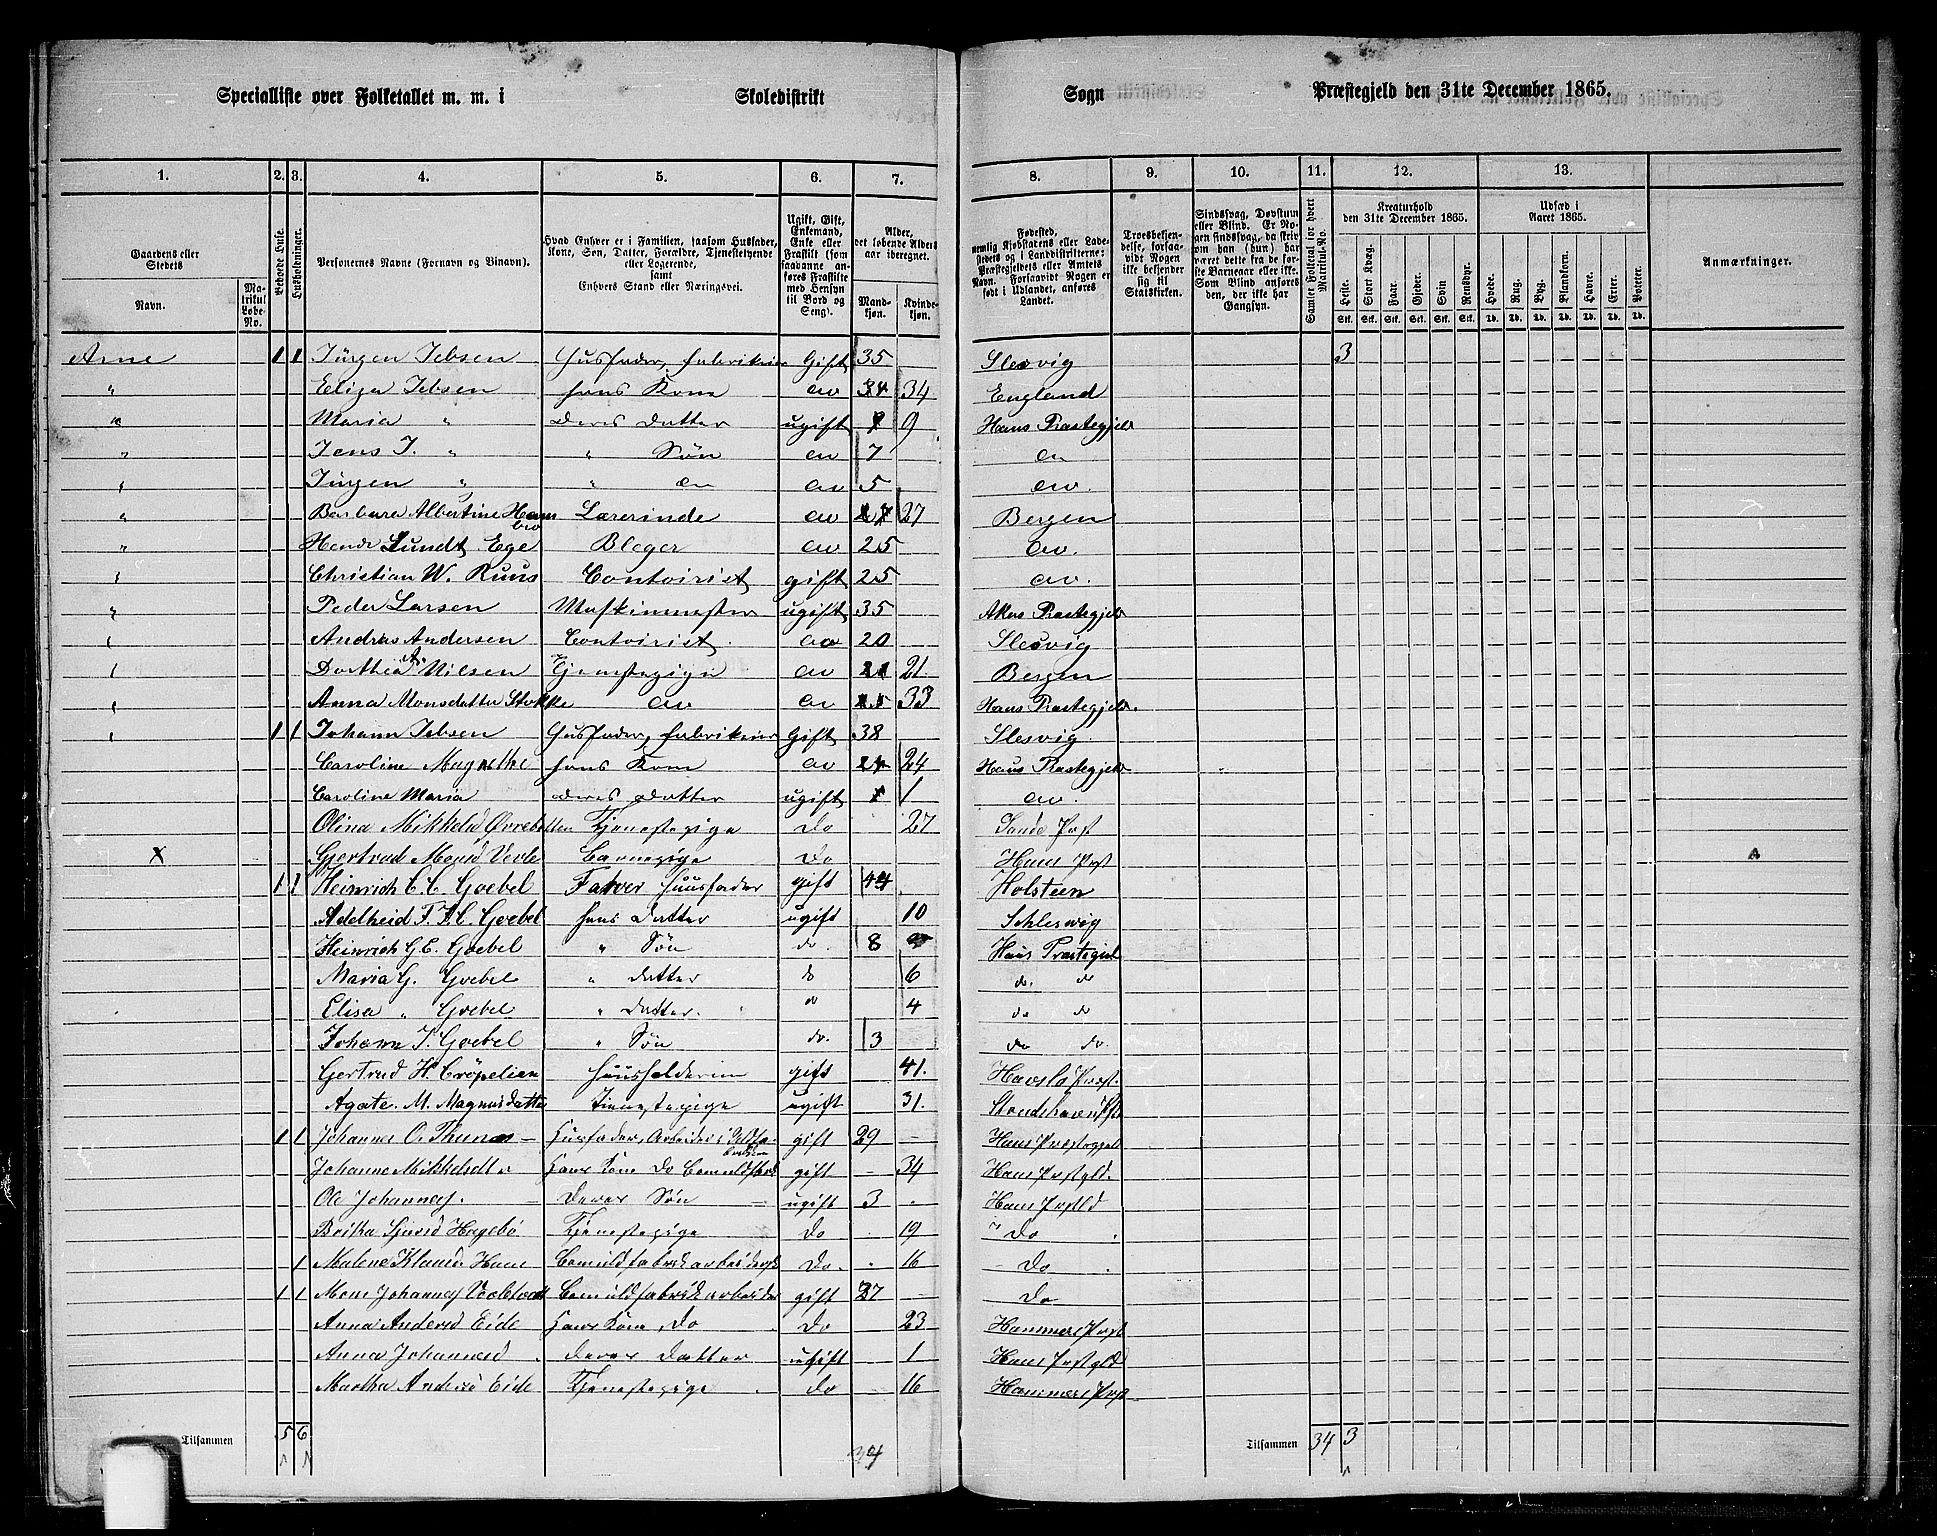 Specialliste over Folketallet m. m. i Skoledistrikt Sogn Præstegjeld den 31te December 1865.
1. 2. 3. 4. 5. 6. 7. 8. 9. 10. 11. 12. 13.
Gaardens eller Stedets
Navn. Matrikul Løbe-No.
Beboede Huse.
Husholdninger.
Personernes Navne (Fornavn og Tilnavn).
Hvad Enhver er i Familien, saasom Husfader, Kone, Søn, Datter, Forældre, Tjenestetyende eller Logerende, samt Enhvers Stand eller Næringsvei.
Ugift, Gift, Enkemand, Enke eller Fraskilt (som saadanne anføres Fraskilte med Hensyn til Bord og Seng).
Alder, det løbende Alders-aar iberegnet.
Mand-kjøn. Kvinde-kjøn.
Fødested, nemlig Kjøbstadens eller Ladestedets og i Landdistrikterne: Præstegjeldets eller Amtets Navn. Forsaavidt Nogen er født i Udlandet, anføres Landet.
Troesbekjendelse, forsaavidt Nogen ikke bekjender sig til Statskirken.
Sindssvag, Døvstum eller Blind. Er Nogen sindssvag, da skrives om han (hun) har været dette fra de første Barneaar eller ikke. Som Blind anføres den, der ikke har Gangsyn.
Samlet Folketal for hvert Matrikul-No.
Kreaturhold den 31te December 1865.
Heste. Stort Kvæg. Faar. Gjeder. Svin Rensdyr.
Stk. Stk. Stk. Stk. Stk. Stk.
Udsæd i Aaret 1865.
Hvede. Rug. Byg. Blandkorn. Havre. Erter. Poteter.
Td. Td. Td. Td. Td. Td. Td.
Anmærkninger.
Arne 1 1 Jürgen Jebsen Husfader, fabrikeier Gift 35 Slesvig 3
" Eliza Jebsen hans Kone do 34 England
" Maria " deres datter ugift 9 Haus Præstegjeld
" Jens J. " " Søn do 7 do
" Jürgen " " do do 5 do.
" Barbara Albertine Lærerinde do 27 Bergen
" Lundt Ege Bleger do 25 do.
" Christian W. Ruus Contoirist gift 25 do.
" Peder Larsen Maskinmester ugift 35 Akers Præstegjeld
" Andreas Andersen Contoirist. do 20 Slesvig
" Dorthea A. Nilsen Tjenestepige do 21. Bergen
" Anna Monsdatter Stokke do do 33 Haus Præstegjeld.
" 1 1 Johann Jebsen Husfader, fabrikeier Gift 38 Slesvig
Caroline Magrethe hans Kone do 24 Haus Præstegjeld
Caroline Maria deres datter ugift 1 do.
Olina Mikkelsd Tjenestepige Do 27 Sande Præst
X Gjertrud Monsd Barnepige Do Haus Præst
1 1 Heinrich C. C. Goebel Farver Huusfader gift 44 Holsteen
Adelheid F. J. C. Goebel hans Datter ugift 10 Schleswig
Heinrich G. E. Goebel " Søn do. 8 Haus Præstegjel
Maria G. Goebel " datter do 6 do. do
Elisa " Goebel " datter. do 4 do do
Johann J. Goebel " Søn do. 3 do do.
Gertrud H. Cröpelien Huusholderinne gift 41. Hafslo Præst.
Agate. M. Magnusdatter Tienestepige ugift 31.
1 1 Johannes O. Husfader, Arbeider i gift 29 Haus Præstegjeld
Johanne Mikkelsdt. Hans Kone Do gift 34 Haus Præstgjld.
Ole Johannes. Deres Søn ugift 3 Haus Præstgld
Britha Hagebø Tjenestepige do 19 Do
1 Malene Klausd. Haus Bomuldfabrik arbeidersk Do. 16 Do
1 1 Mons Johannes Bomuldfabrik arbeider gift 27 Do
Anna Andersd Eide Hans Kone, Do Do 23 Hammers Præst
Anna Johannesd. Deres Datter ugift 1 Haus Præstgld
Martha Andersd Eide Tjenestepige do 16 Hammers Præst
Tilsammen 5 6 34 Tilsammen 34 3